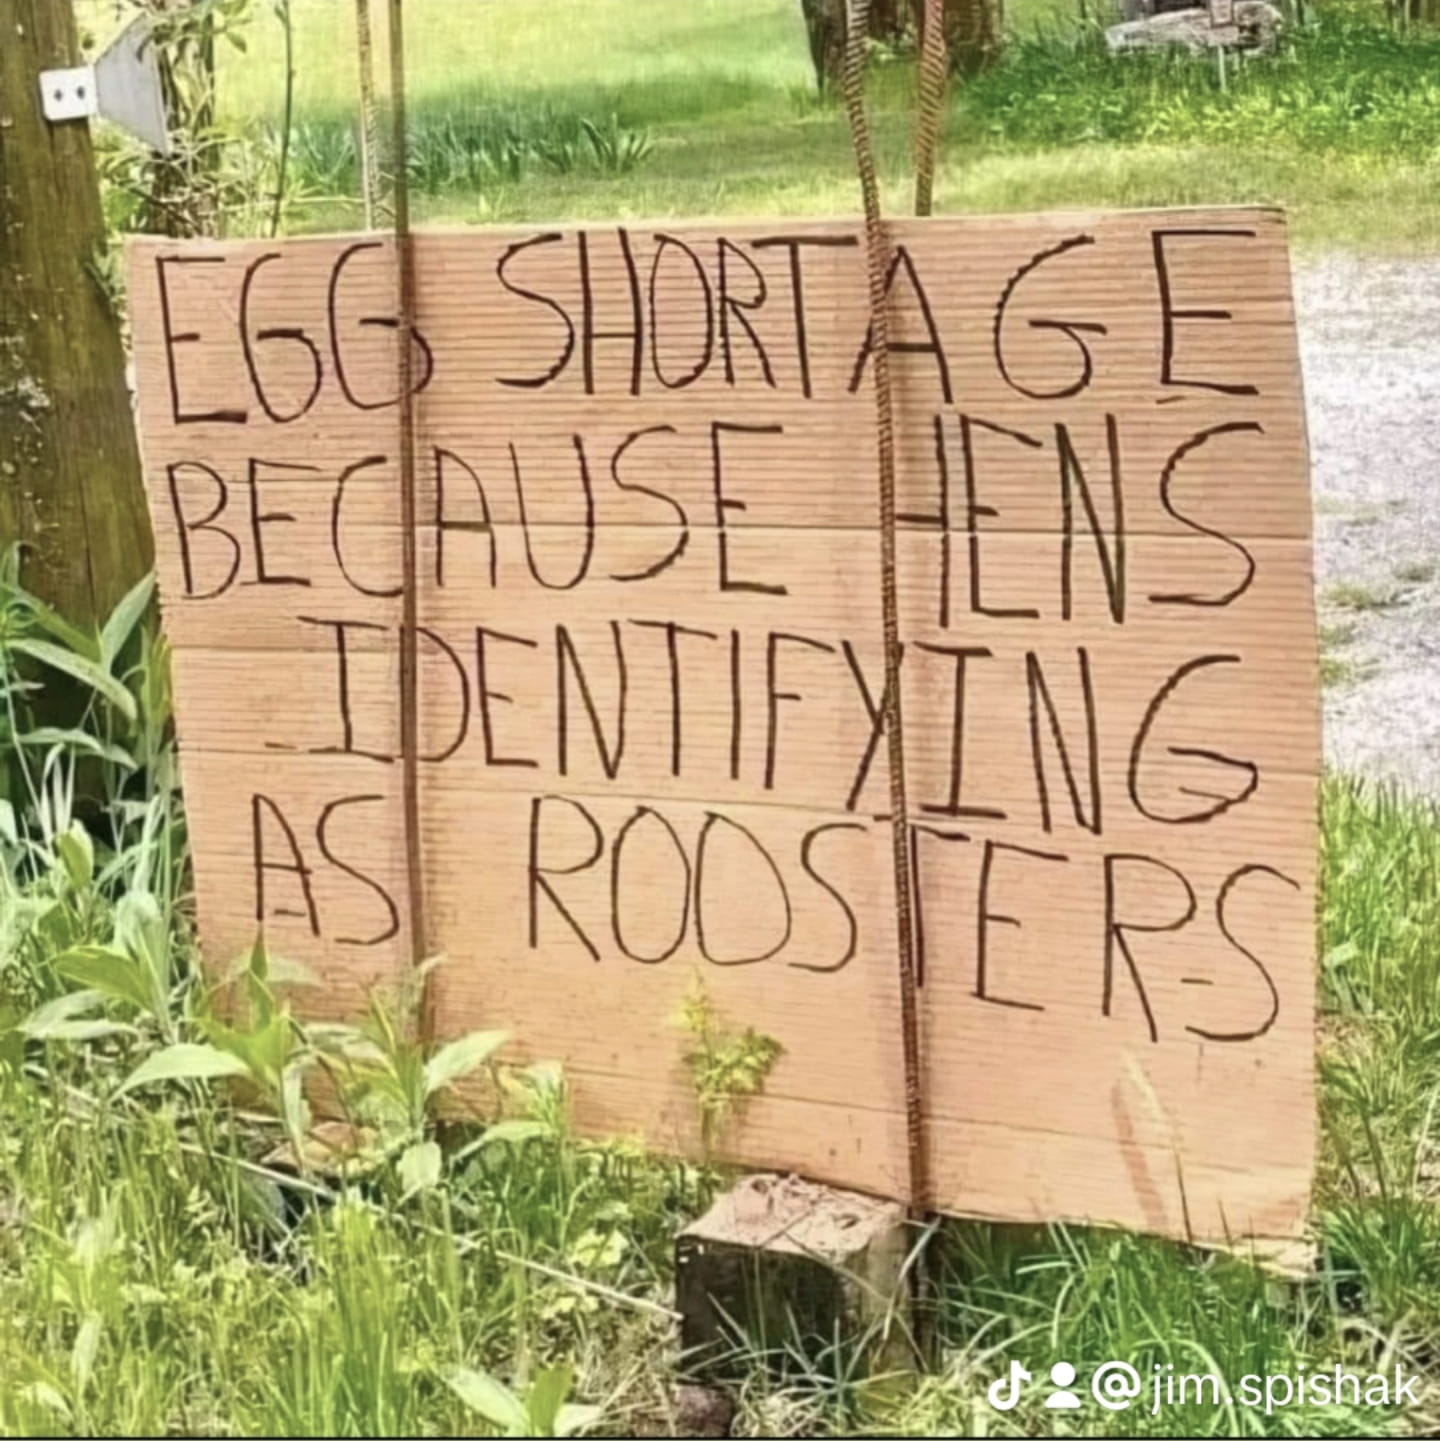 EGG SHORTAGE
BECAUSE HENS
IDENTIFYING
AS ROOSTERS
@jim.spishak